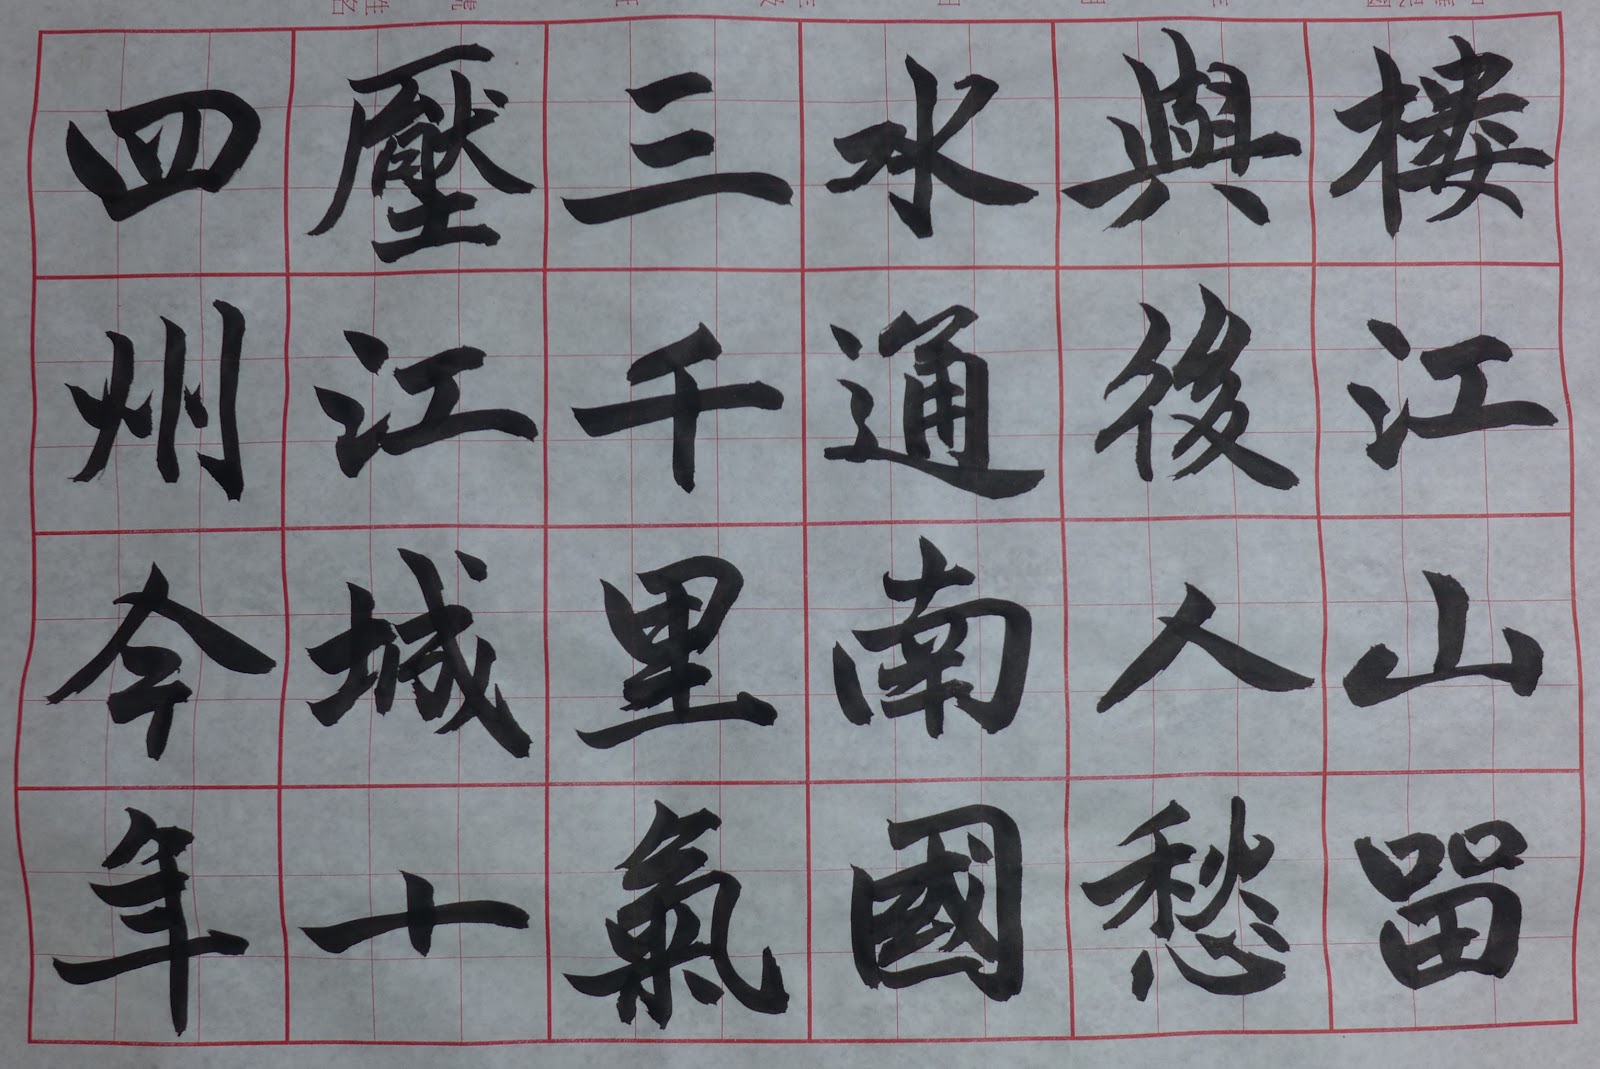 樓江山留
與後人愁
水通南國
三千里氣
壓江城十
四州今年